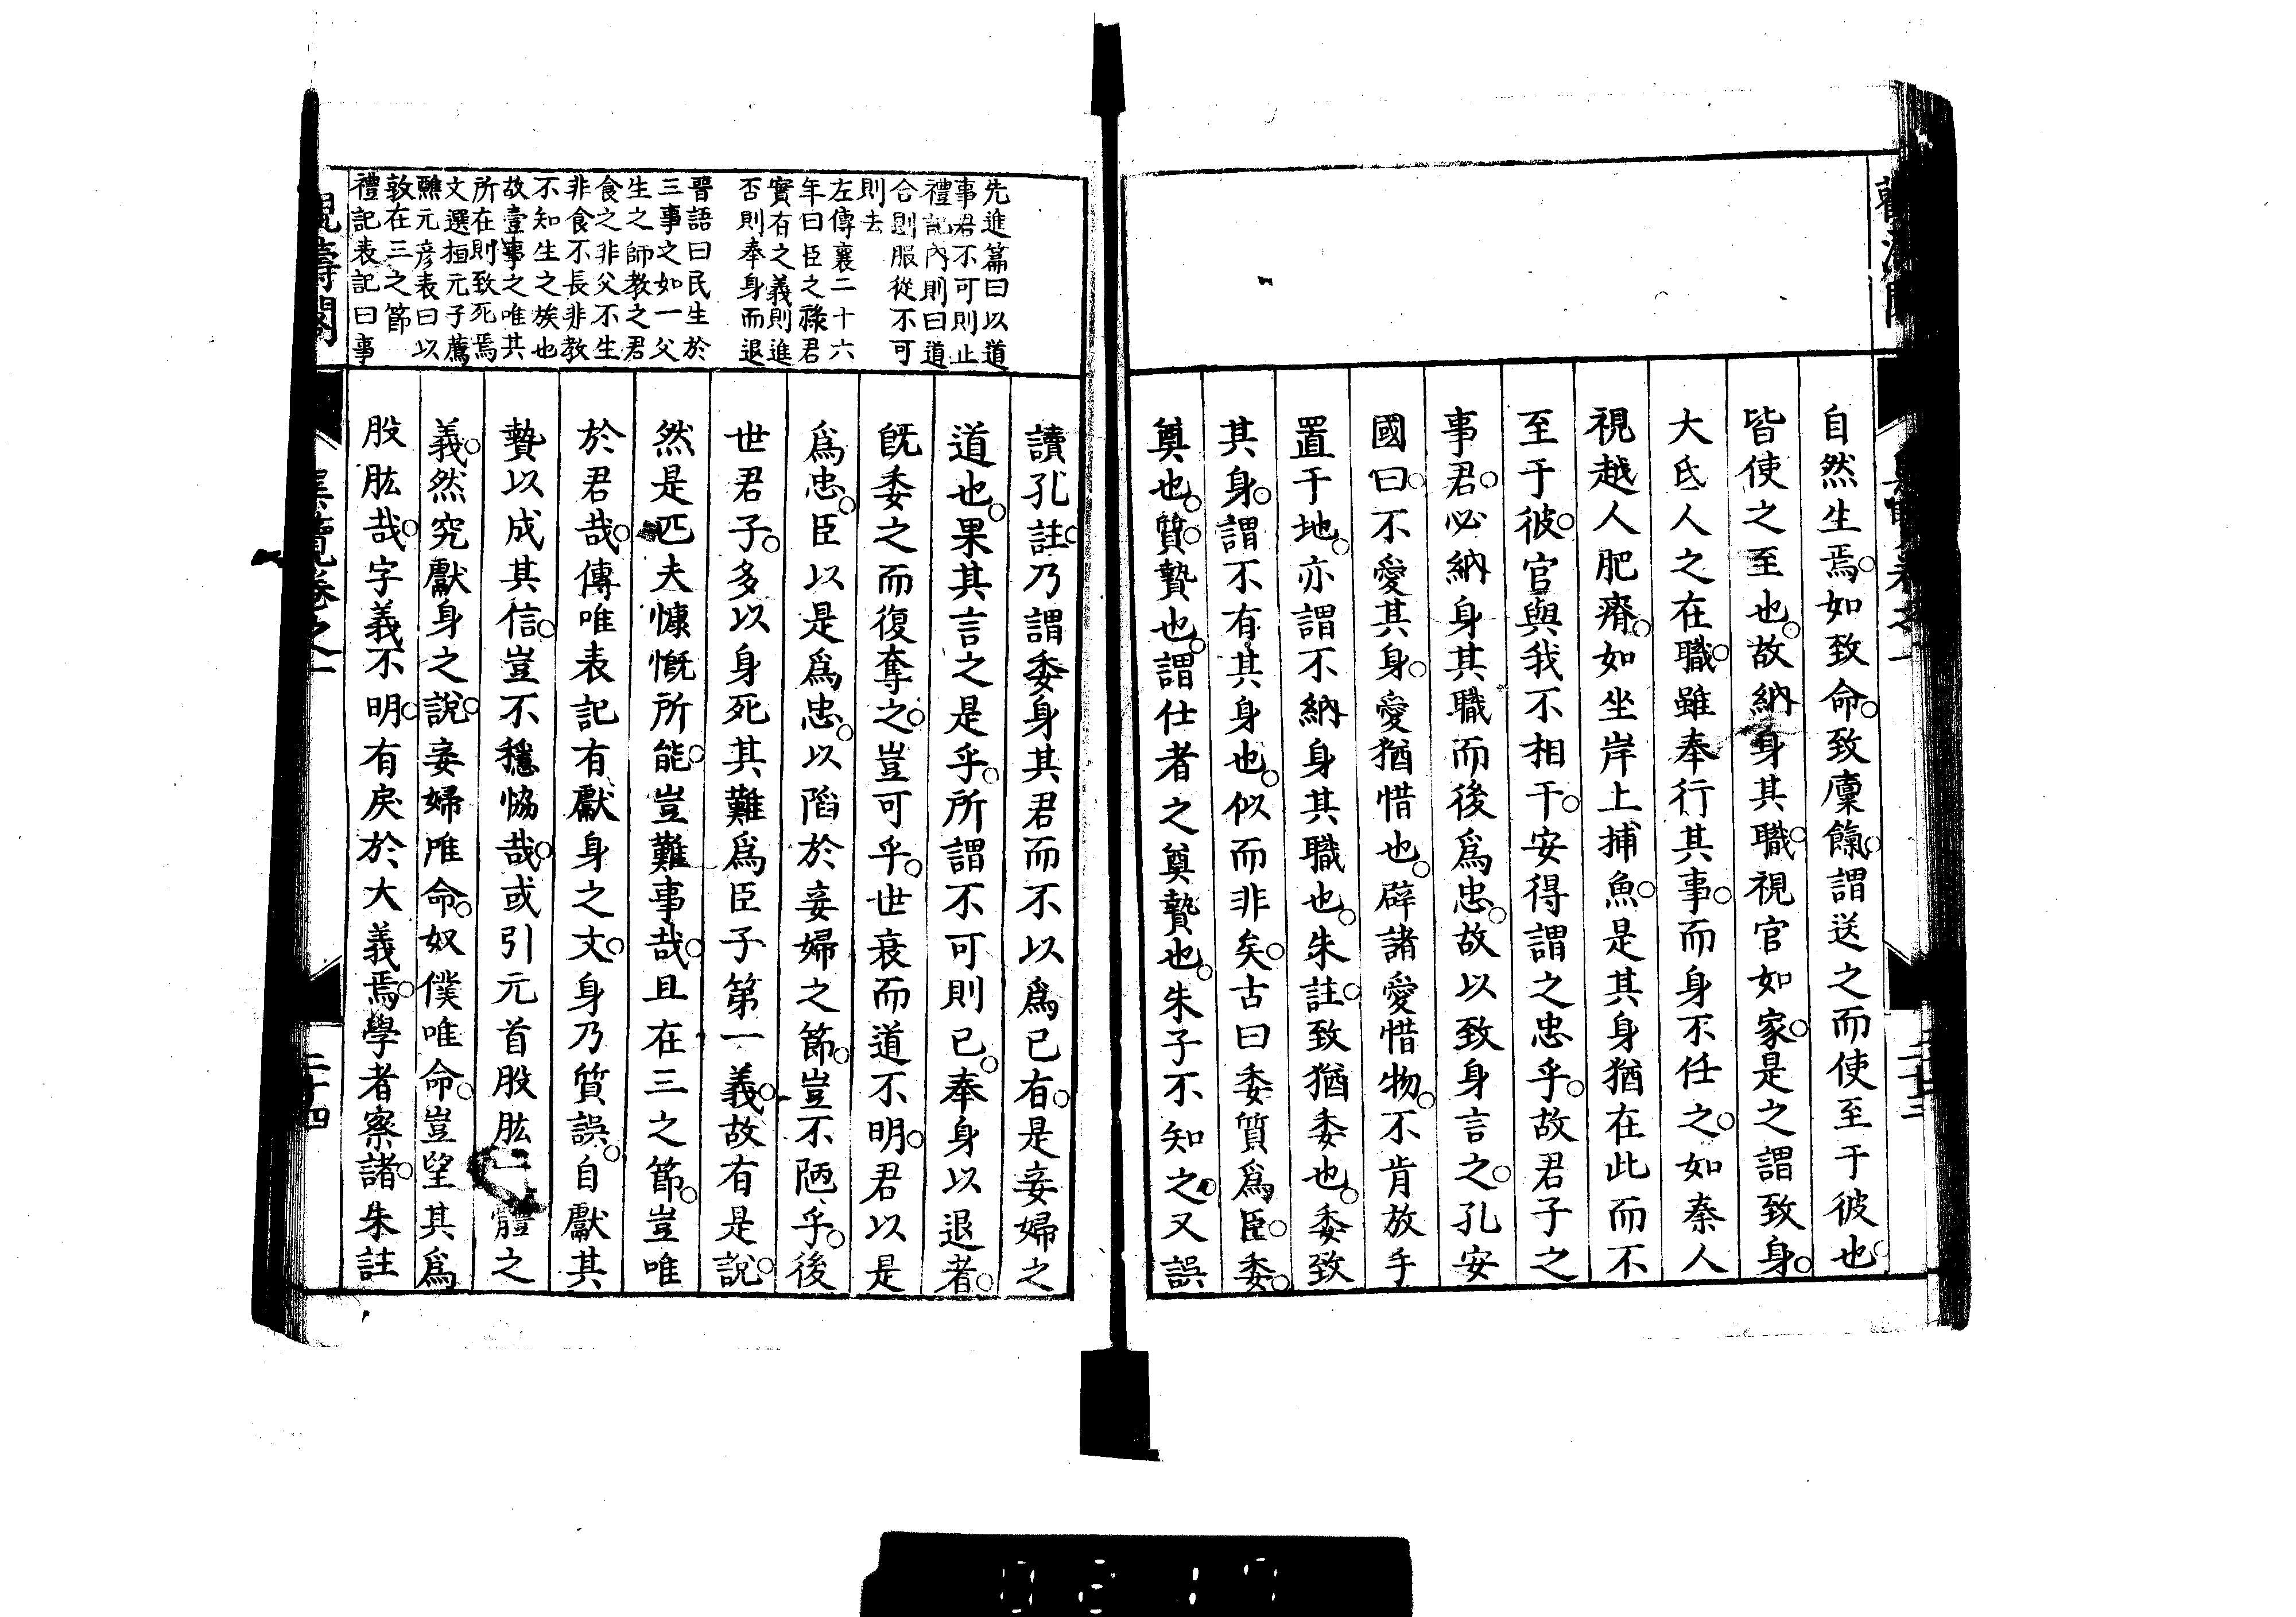 自然生焉。如致命。致廩餼。謂送之而使至于彼也。
皆使之至也。故納身其職。視官如家。是之謂致身。
大氐人之在職。雖奉行其事。而身不任之。如秦人
視越人肥瘠。如坐岸上捕魚。是其身猶在此而不
至于彼。官與我不相干。安得謂之忠乎。故君子之
事君。必納身其職而後爲忠。故以致身言之。孔安
國曰。不愛其身。愛猶惜也。辟諸愛惜物。不肯放手
置于地。亦謂不納身其職也。朱註。致猶委也。委致
其身。謂不有其身也。似而非矣。古曰委質爲臣。委。
奠也。質。贄也。謂仕者之奠贄也。朱子不知之。又誤
先進篇曰以道
事君不可則止
禮記內則曰道
合則服從不可
則去
左傳襄二十六
年曰臣之祿君
實有之義則進
否則奉身而退
晉語曰民生於
三事之如一父
生之師教之君
食之非父不生
非食不長非教
不知生之族也
故壹事之唯其
所在則致死焉
文選桓元子薦
譙元彥表曰以
敦在三之節
禮記表記曰事
讀孔註。乃謂委身其君而不以爲已有。是妾婦之
道也。果其言之是乎。所謂不可則已。奉身以退者。
旣委之而復奪之。豈可乎。世衰而道不明。君以是
爲忠。臣以是爲忠。以陷於妾婦之節。豈不陋乎。後
世君子。多以身死其難爲臣子第一義。故有是說。
然是匹夫慷慨所能。豈難事哉。且在三之節。豈唯
於君哉。傳唯表記有獻身之文。身乃質誤。自獻其
贄以成其信。豈不穩恊哉。或引元首股肱一體之
義。然究獻身之說。妾婦唯命。奴僕唯命。豈望其爲
股肱哉。字義不明。有戾於大義焉。學者察諸。朱註
覽卷之一
二十四